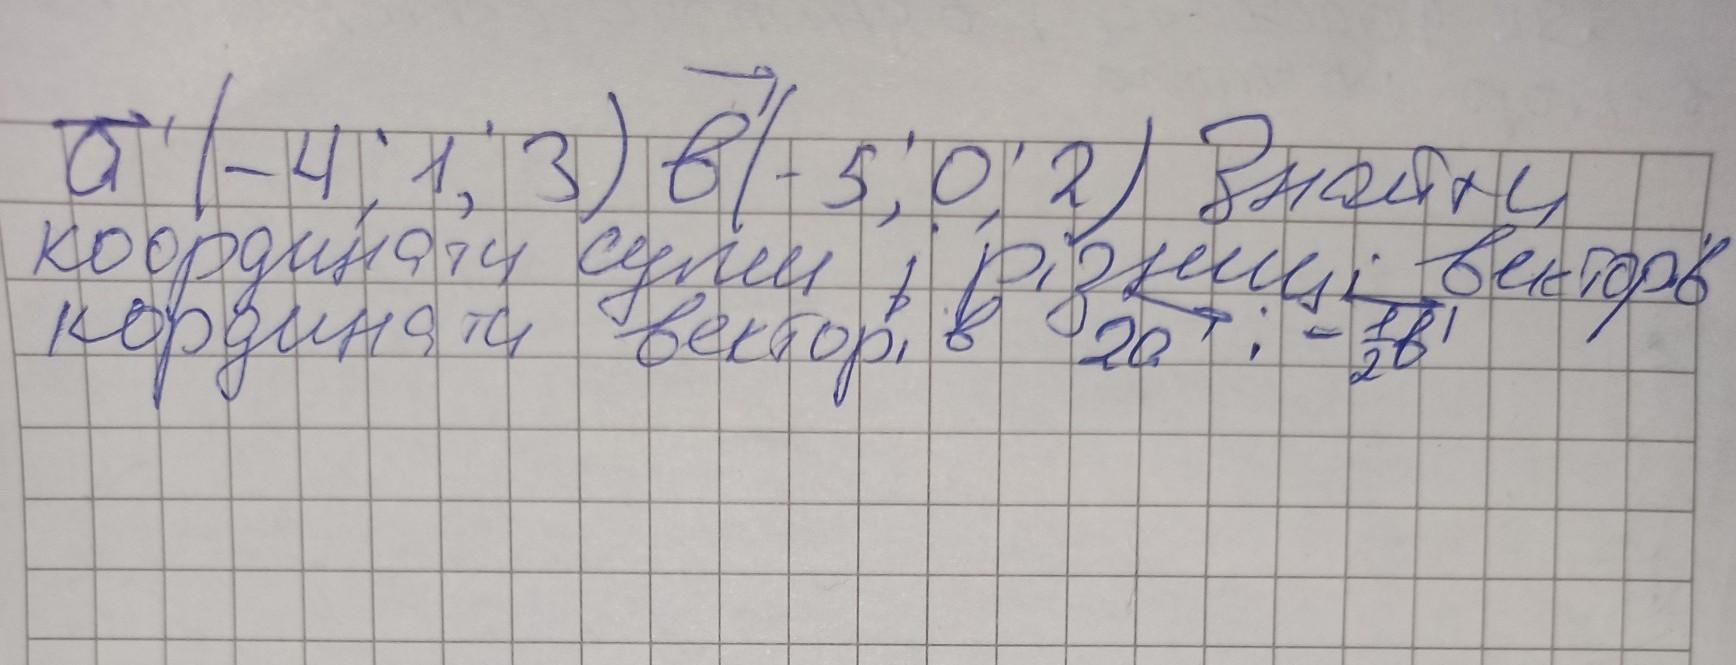 a⃗ (-4; 1; 3) в⃗ (-5; 0; 2) Знайти
координати суми і різниці векторів
кординати векторів 2a⃗ ; -1/2в⃗